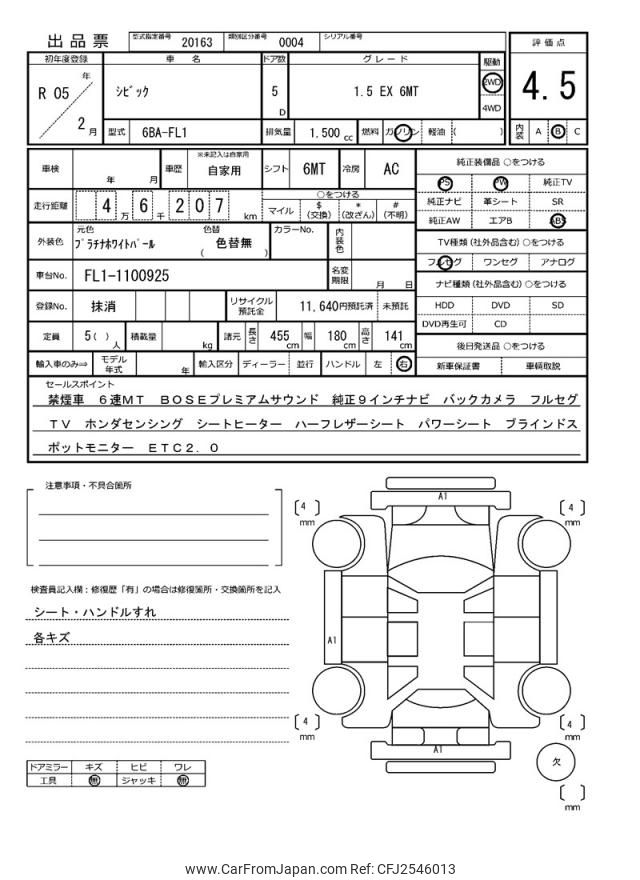 出品票 型式指定番号 20163 類別区分番号 0004 シリアル番号
評価点
初年度登録 車名 ドア数 グレード 駆動
R 05 年 シビック 5 D 1.5 EX 6MT 2WD 4WD
4.5
2 月 型式 6BA-FL1 排気量 1,500 cc 燃料 ガソリン 軽油 ( )
内装 A B C
車検 年 月 車歴 ※未記入は自家用 自家用 シフト 6MT 冷房 AC
純正装備品 ○をつける
PS PW 純正TV
走行距離 4 万 6 千 2 0 7 km
○をつける
マイル $ (交換) * (改ざん) # (不明)
純正ナビ 革シート SR
純正AW エアB ABS
外装色 元色 プラチナホワイトパール 色替 ( 色替無 ) カラーNo. 内装色
TV種類 (社外品含む) ○をつける
フルセグ ワンセグ アナログ
車台No. FL1-1100925 名変期限 月 日
ナビ種類 (社外品含む) ○をつける
登録No. 抹消 リサイクル預託金 11,640円預託済 未預託
HDD DVD SD
DVD再生可 CD
定員 5( ) 人 積載量 kg 諸元 長さ 455 cm 幅 180 cm 高さ 141 cm
後日発送品 ○をつける
輸入車のみ⇒ モデル年式 年 輸入区分 ディーラー 並行 ハンドル 左 右
新車保証書 車輌取説
セールスポイント
禁煙車 6速MT BOSEプレミアムサウンド 純正9インチナビ バックカメラ フルセグ
TV ホンダセンシング シートヒーター ハーフレザーシート パワーシート ブラインドス
ポットモニター ETC2.0
注意事項・不具合箇所
A1
[ 4 ] mm
[ 4 ] mm
検査員記入欄：修復歴「有」の場合は修復箇所・交換箇所を記入
シート・ハンドルすれ
各キズ
A1
[ 4 ] mm
[ 4 ] mm
A1
欠
[ ] mm
ドアミラー キズ ヒビ ワレ
工具 無 ジャッキ 無
www.CarFromJapan.com Ref: CFJ2546013